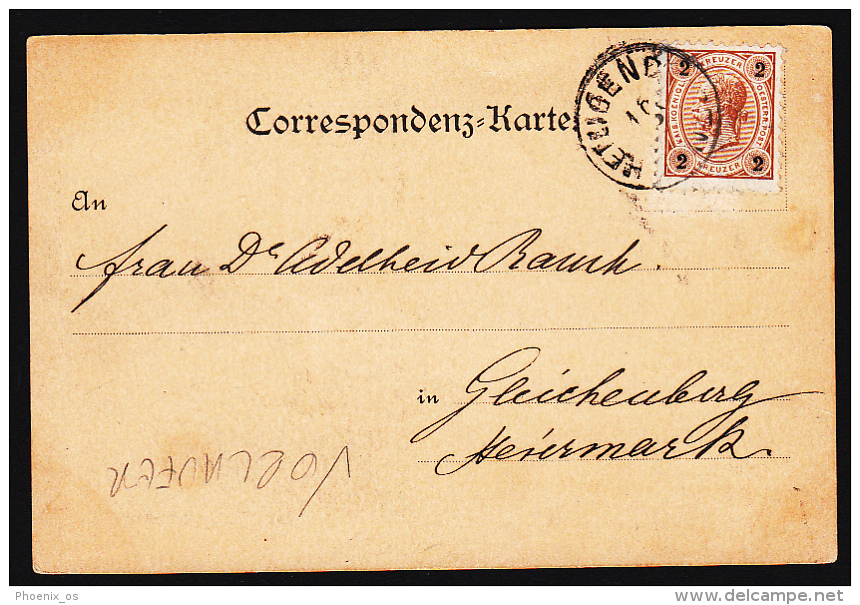 Correspondenz-Karte
HEILIGEN
2 KREUZER 2
KAIS. KOENIGL. OESTERR. POST
2 KREUZER 2
An
Frau Dr Adelheid Rauch.
in Gleichenberg
Steiermark.
VORLAUFER
Phoenix_os
delcampe.net